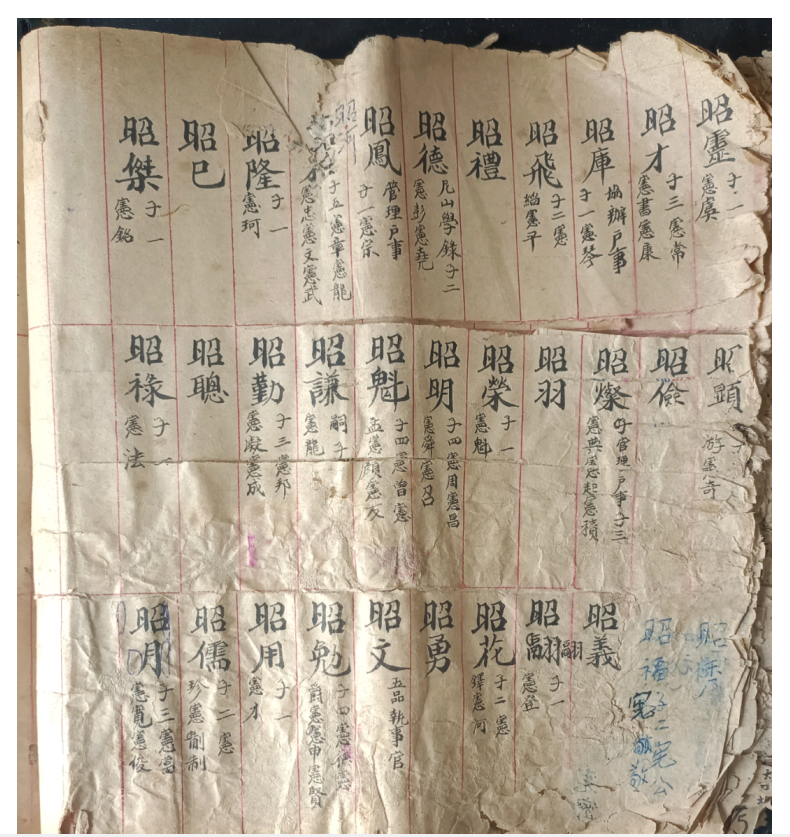 昭靈 子一 憲虞
昭才 子三 憲常 憲書 憲康
昭庫 協辦戶事 子一 憲琴
昭飛 子二 憲 憲平
昭禮
昭德 尼山學錄 子二 憲彭 憲堯
昭鳳 管理戶事 子一 憲宗
昭 子五 憲章 憲龍 憲忠 憲文 憲武
昭隆 子一 憲珂
昭巳
昭傑 子一 憲銘
昭顕 子
昭儉
昭燦 官理戶事 子三 憲典 憲起 憲積
昭羽
昭榮 子一 憲魁
昭明 子四 憲周 憲昌 憲舜 憲召
昭魁 子四 憲曾 憲孟 憲顔 憲友
昭謙 嗣子 憲龍
昭勤 子三 憲邦 憲凝 憲成
昭聰
昭祿 子一 憲法
昭
昭禧 子二 憲公 憲敬
昭義
昭翮 翮 子一 憲登
昭花 子二 憲鐸 憲河
昭勇
昭文 五品執事官
昭勉 子四 憲爵 憲申 憲賢
昭用 子一 憲才
昭儒 子二 憲珍 憲制
昭月 子三 憲富 憲寬 憲俊